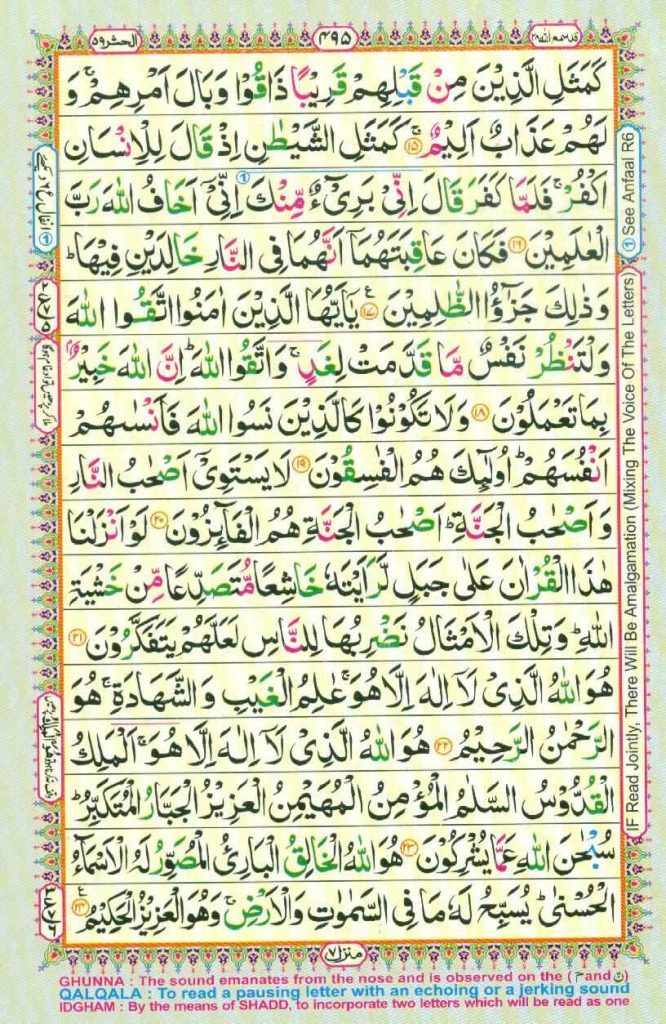 قد سمع الله ٢٨
٤٩٥
الحشر ٥٩
كَمَثَلِ الَّذِيْنَ مِنْ قَبْلِهِمْ قَرِيْبًا ذَاقُوْا وَبَالَ اَمْرِهِمْ ۚ وَ
لَهُمْ عَذَابٌ اَلِيْمٌ ۚ ۝١٥ كَمَثَلِ الشَّيْطٰنِ اِذْ قَالَ لِلْاِنْسَانِ
اكْفُرْ ۚ فَلَمَّا كَفَرَ قَالَ اِنِّىْ بَرِىْٓءٌ مِّنْكَ اِنِّىْٓ اَخَافُ اللّٰهَ رَبَّ
الْعٰلَمِيْنَ ۝١٦ فَكَانَ عَاقِبَتَهُمَآ اَنَّهُمَا فِى النَّارِ خَالِدَيْنِ فِيْهَا ؕ
وَذٰلِكَ جَزٰٓؤُا الظّٰلِمِيْنَ ۝١٧ يٰٓاَيُّهَا الَّذِيْنَ اٰمَنُوا اتَّقُوا اللّٰهَ
وَلْتَنْظُرْ نَفْسٌ مَّا قَدَّمَتْ لِغَدٍ ۚ وَاتَّقُوا اللّٰهَ ؕ اِنَّ اللّٰهَ خَبِيْرٌۢ
بِمَا تَعْمَلُوْنَ ۝١٨ وَلَا تَكُوْنُوْا كَالَّذِيْنَ نَسُوا اللّٰهَ فَاَنْسٰىهُمْ
اَنْفُسَهُمْ ؕ اُولٰٓئِكَ هُمُ الْفٰسِقُوْنَ ۝١٩ لَا يَسْتَوِىْٓ اَصْحٰبُ النَّارِ
وَاَصْحٰبُ الْجَنَّةِ ؕ اَصْحٰبُ الْجَنَّةِ هُمُ الْفَآئِزُوْنَ ۝٢٠ لَوْ اَنْزَلْنَا
هٰذَا الْقُرْاٰنَ عَلٰى جَبَلٍ لَّرَاَيْتَهٗ خَاشِعًا مُّتَصَدِّعًا مِّنْ خَشْيَةِ
اللّٰهِ ؕ وَتِلْكَ الْاَمْثَالُ نَضْرِبُهَا لِلنَّاسِ لَعَلَّهُمْ يَتَفَكَّرُوْنَ ۝٢١
هُوَ اللّٰهُ الَّذِىْ لَآ اِلٰهَ اِلَّا هُوَ ۚ عٰلِمُ الْغَيْبِ وَالشَّهَادَةِ ۚ هُوَ
الرَّحْمٰنُ الرَّحِيْمُ ۝٢٢ هُوَ اللّٰهُ الَّذِىْ لَآ اِلٰهَ اِلَّا هُوَ ۚ اَلْمَلِكُ
الْقُدُّوْسُ السَّلٰمُ الْمُؤْمِنُ الْمُهَيْمِنُ الْعَزِيْزُ الْجَبَّارُ الْمُتَكَبِّرُ ؕ
سُبْحٰنَ اللّٰهِ عَمَّا يُشْرِكُوْنَ ۝٢٣ هُوَ اللّٰهُ الْخَالِقُ الْبَارِئُ الْمُصَوِّرُ لَهُ الْاَسْمَآءُ
الْحُسْنٰى ؕ يُسَبِّحُ لَهٗ مَا فِى السَّمٰوٰتِ وَالْاَرْضِ ۚ وَهُوَ الْعَزِيْزُ الْحَكِيْمُ ۝٢٤
منزل ٧
① See Anfaal R6
IF Read Jointly, There Will Be Amalgamation (Mixing The Voice Of The Letters)
GHUNNA : The sound emanates from the nose and is observed on the (م and ن)
QALQALA : To read a pausing letter with an echoing or a jerking sound
IDGHAM : By the means of SHADD, to incorporate two letters which will be read as one